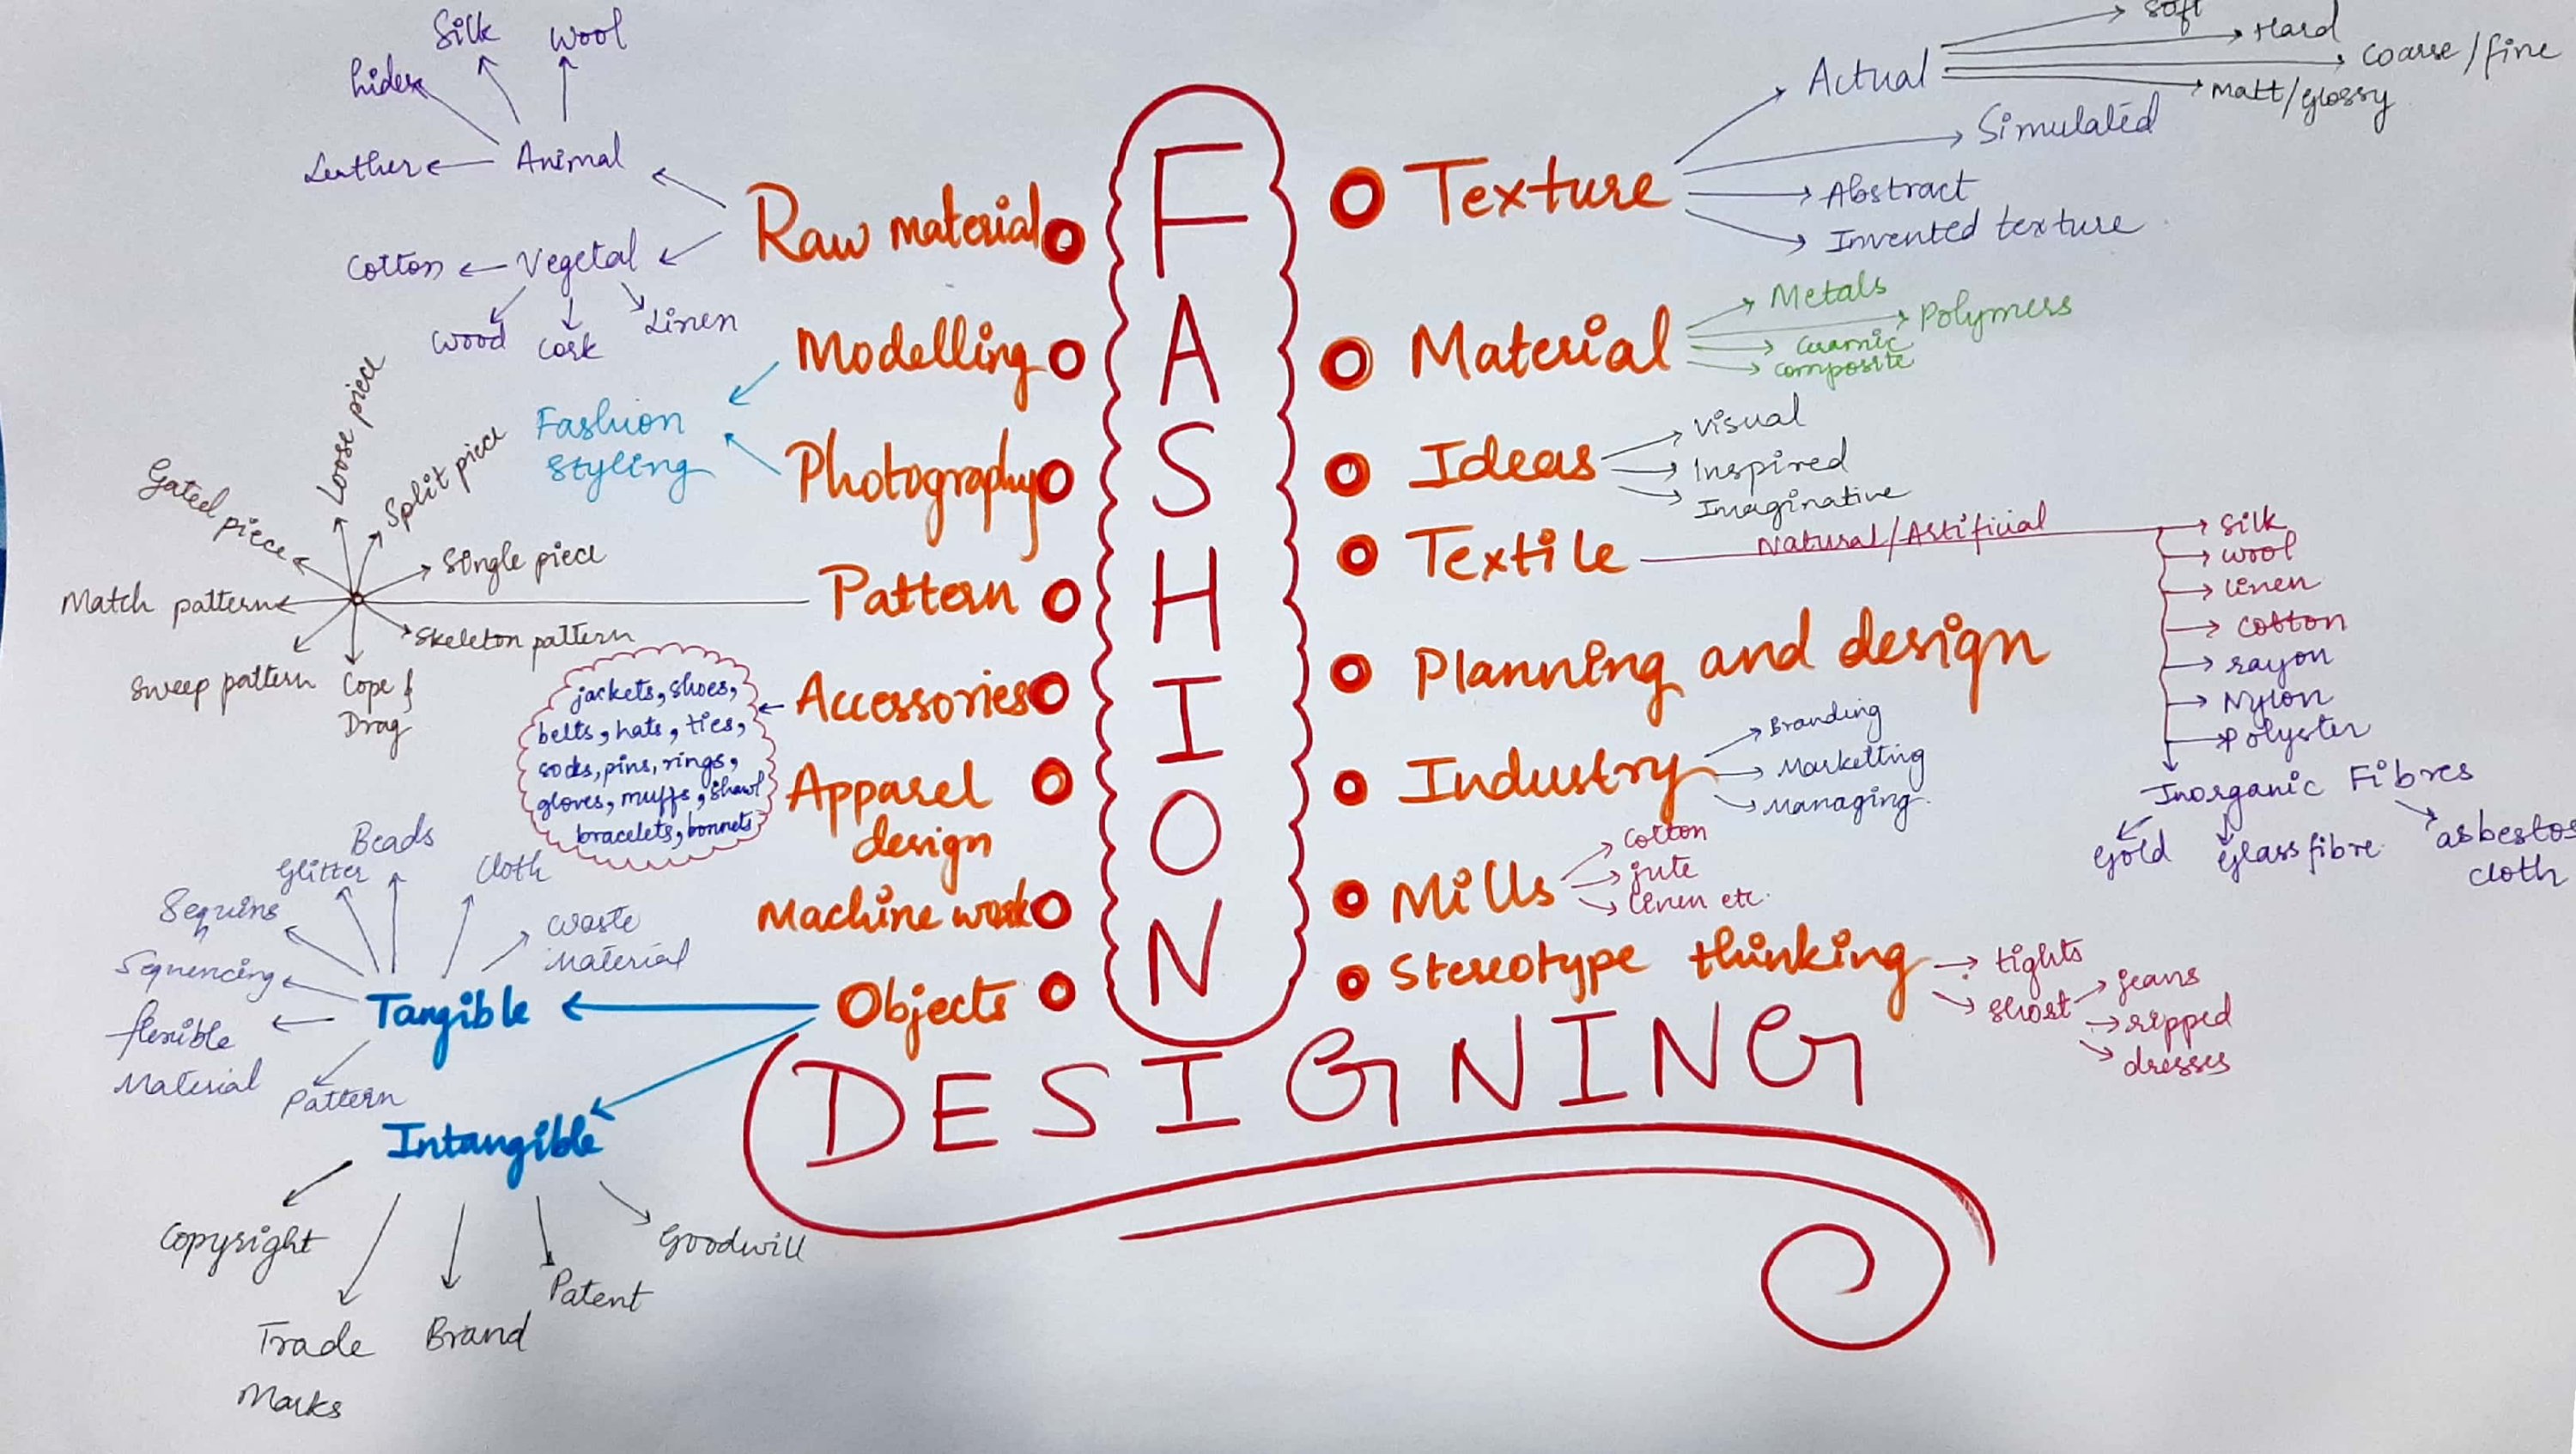 FASHION
DESIGNING
Raw material
Animal
Silk
Wool
hides
Leather
Vegetal
Cotton
Wood
Cork
Linen
Modelling
Photography
Fashion
Styling
Pattern
Loose piece
Split piece
Gated piece
Single piece
Match pattern
Skeleton pattern
Sweep pattern
Cope &
Drag
Accessories
jackets, shoes,
belts, hats, ties,
socks, pins, rings,
gloves, muffs, shawl
bracelets, bonnets
Apparel
design
Machine work
Objects
Tangible
Beads
Glitter
Cloth
Sequins
Waste
Material
Sequencing
flexible
Material
Pattern
Intangible
Copyright
Trade
Marks
Brand
Patent
Goodwill
Texture
Actual
Soft
Hard
Coarse/fine
Matt/glossy
Simulated
Abstract
Invented texture
Material
Metals
Polymers
Ceramic
Composite
Ideas
Visual
Inspired
Imaginative
Textile
Natural/Artificial
Silk
wool
linen
cotton
rayon
Nylon
Polyster
Inorganic Fibres
Gold
Glass fibre
asbestos
cloth
Planning and design
Industry
Branding
Marketting
Managing
Mills
Cotton
jute
linen etc.
Stereotype thinking
tights
short
jeans
ripped
dresses